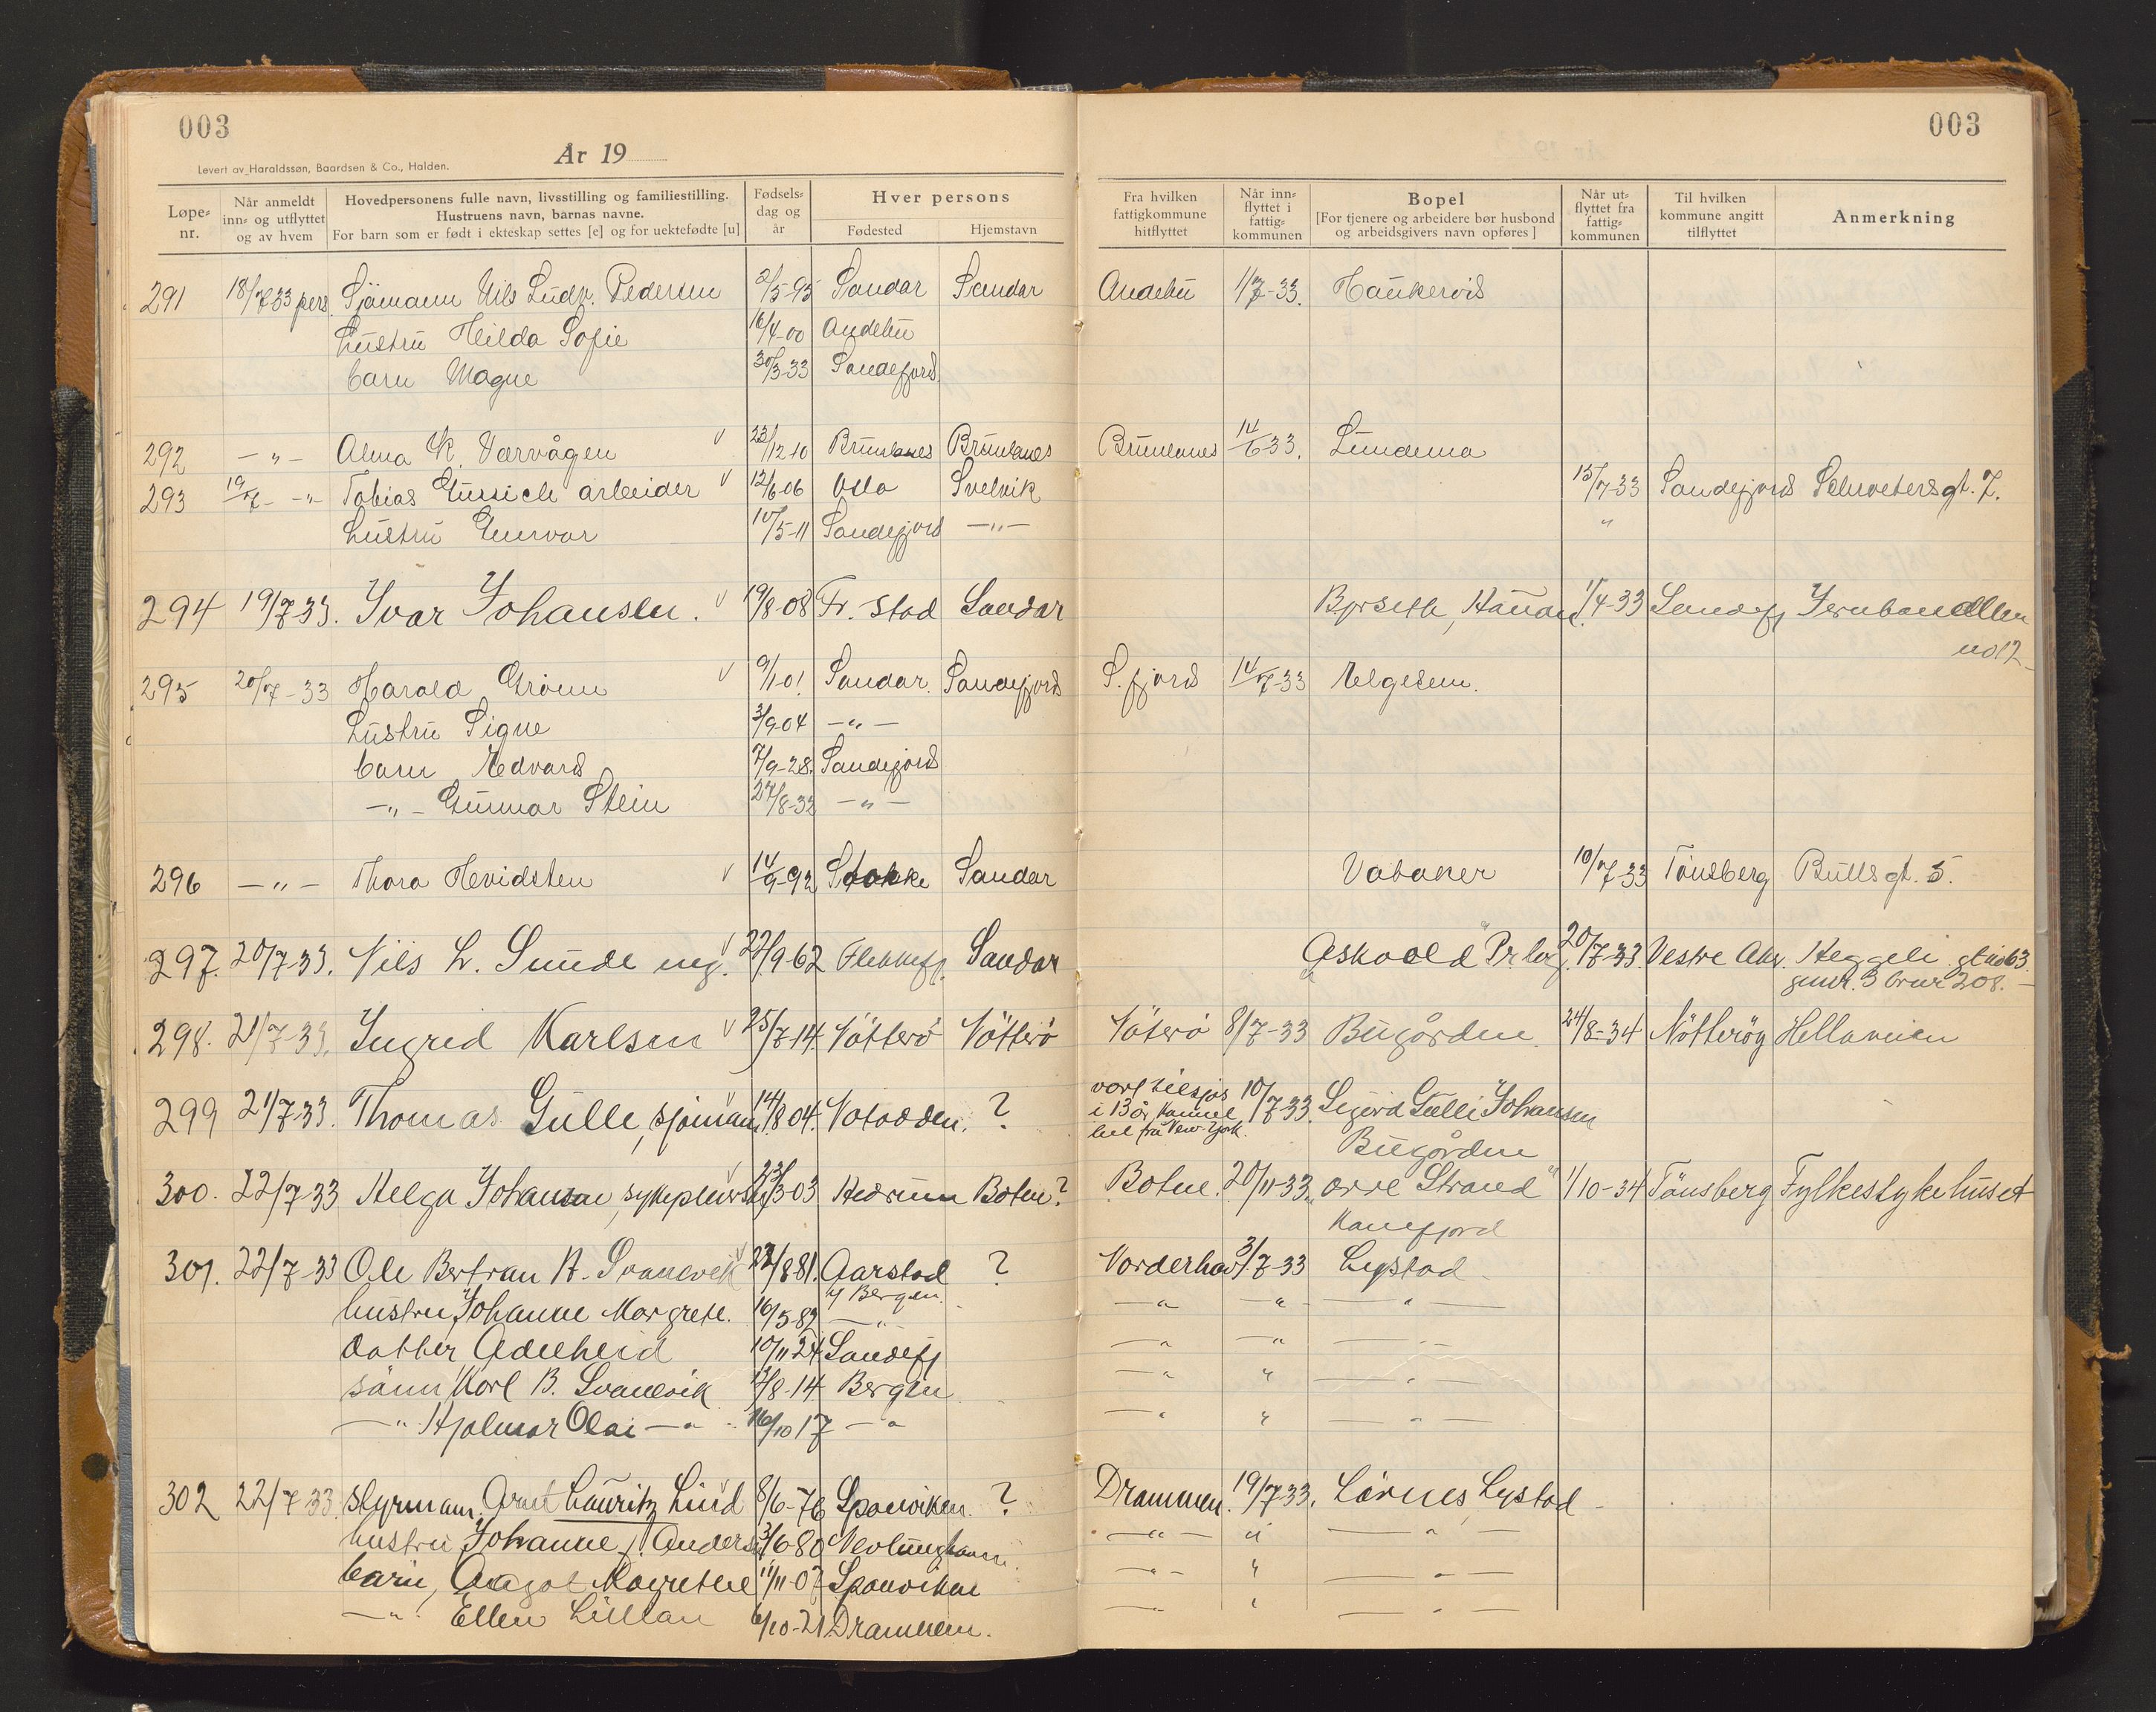 003
003
År 19
Levert av Haraldssøn, Baardsen & Co., Halden.
Løpe-nr.
Når anmeldt inn- og utflyttet og av hvem
Hovedpersonens fulle navn, livsstilling og familiestilling.
Hustruens navn, barnas navne.
For barn som er født i ekteskap settes [e] og for uektefødte [u]
Fødsels-dag og år
Hver persons
Fødested
Hjemstavn
Fra hvilken fattigkommune hitflyttet
Når inn-flyttet i fattig-kommunen
Bopel
[For tjenere og arbeidere bør husbond og arbeidsgivers navn opføres]
Når ut-flyttet fra fattig-kommunen
Til hvilken kommune angitt tilflyttet
Anmerkning
291 18/7 33 pers. Sjömann Nils Ludv. Pedersen 2/5-95 Sandar Sandar Andebu 1/7-33. Haukerød
hustru Hilda Sofie 16/4-00 Andebu
barn Magne 30/3-33 Sandefjord
292 -„- Alma K. Varvågen 23/12 10 Brunlanes Brunlanes Brunlanes 14/6 33. Lundema
293 19/7- -„- Tobias arbeider 12/6 06 Oslo Svelvik 15/7-33 Sandefjord gt. 7.
hustru Gunvor 10/5-11 Sandefjord -„- „
294 19/7-33. Ivar Johansen. 19/8-08 Fr. stad Sandar Haukerd. 1/4-33 Sandefj Jernbanealleen
no 12
295 20/7-33 Harald Gröem 9/1-01. Sandar. Sandefjord S.fjord 14/7-33 Helgesem.
hustru Signe 3/9-04 -„-
barn Edvard 7/9-28. Sandefjord
-„- Gunnar Stein 27/8-32 -„-
296 -„- Thora Hevidsten 14/9-92 Stokke Sandar Vabaker 10/7-33 Tönsberg Bulls gt. 5.
297. 20/7-33. Nils L. Sunde ing. 22/9-62 Flekkefj. Sandar „Askvold" 20/7-33. Vestre Aker. Heggeli gt no 63.
gnnr. 3 brnr 208.
298. 21/7-33. Ingrid Karlsen 25/7-14. Nötterö Nötterö Nöterö 8/7-33 Bugården 24/8-34 Nötteröy Hellaveien
299 21/7-33. Thomas Gulle, sjömann 14/8 04. Notodden. ? vært tilsjøs
i 13 år, kommet
hit fra New-York. 10/7-33. Sigurd Gulli Johansen
Bugården
300. 22/7-33 Helga Johansen, sykepleierske 23/3-03 Hedrum Botne? Botne. 20/11-33. „Strand" 1/10-34 Tönsberg Fylkessykehuset
Kamfjord
301. 22/7-33 Ole Bertran N. Svanevik 22/8 81. Aarstad ? Norderhov 3/7-33 Lystad
v/ Bergen.
hustru Johanne Margrete. 16/5 82 -„- -„- -„- -„-
datter Adelheid 10/11 24 Sandefj -„- -„- -„-
sönn Karl B. Svanevik /8-14 Bergen -„- „ -„-
-„- Hjalmar Olai -„- 16/10 17 -„- -„- „ -„-
302 22/7-33. styrmann Arnt Lauritz Lind 8/6-76 Sponviken ? Drammen. 19/7-33. Lörnes, Lystad
hustru Johanne f. Anders. 3/6 80 Nevlunghavn -„- „ -„-
barn, Aagot Margrethe 11/11-07 Sponviken -„- „ -„-
-„- Ellen Lillian 6/10-21 Drammen. -„- „ -„-